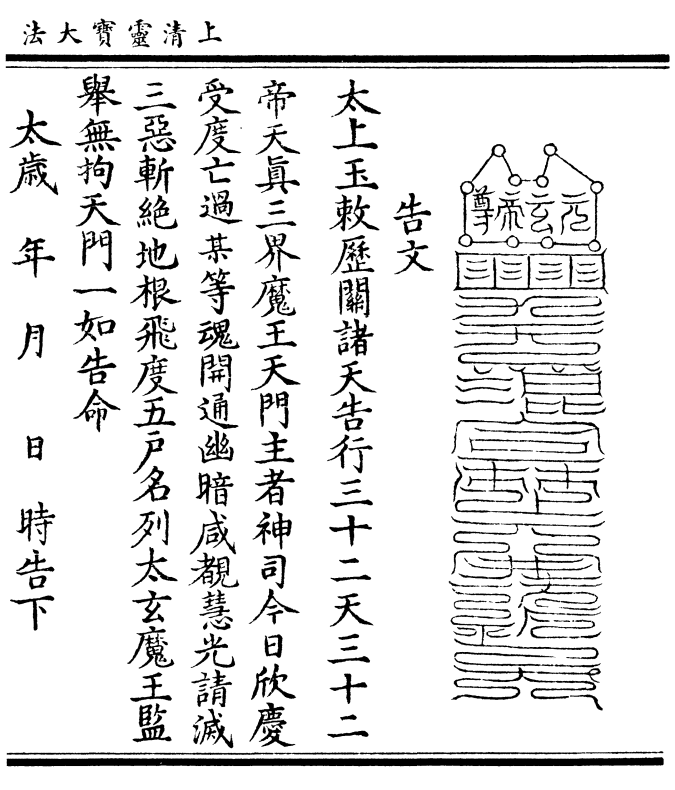 上清靈寶大法
元玄帝尊
告文
太上玉敕歷關諸天告行三十二天三十二
帝天眞三界魔王天門主者神司今日欣慶
受度亡過某等魂開通幽暗咸覩慧光請滅
三惡斬絶地根飛度五戶名列太玄魔王監
舉無拘天門一如告命
太歲 年 月 日 時告下